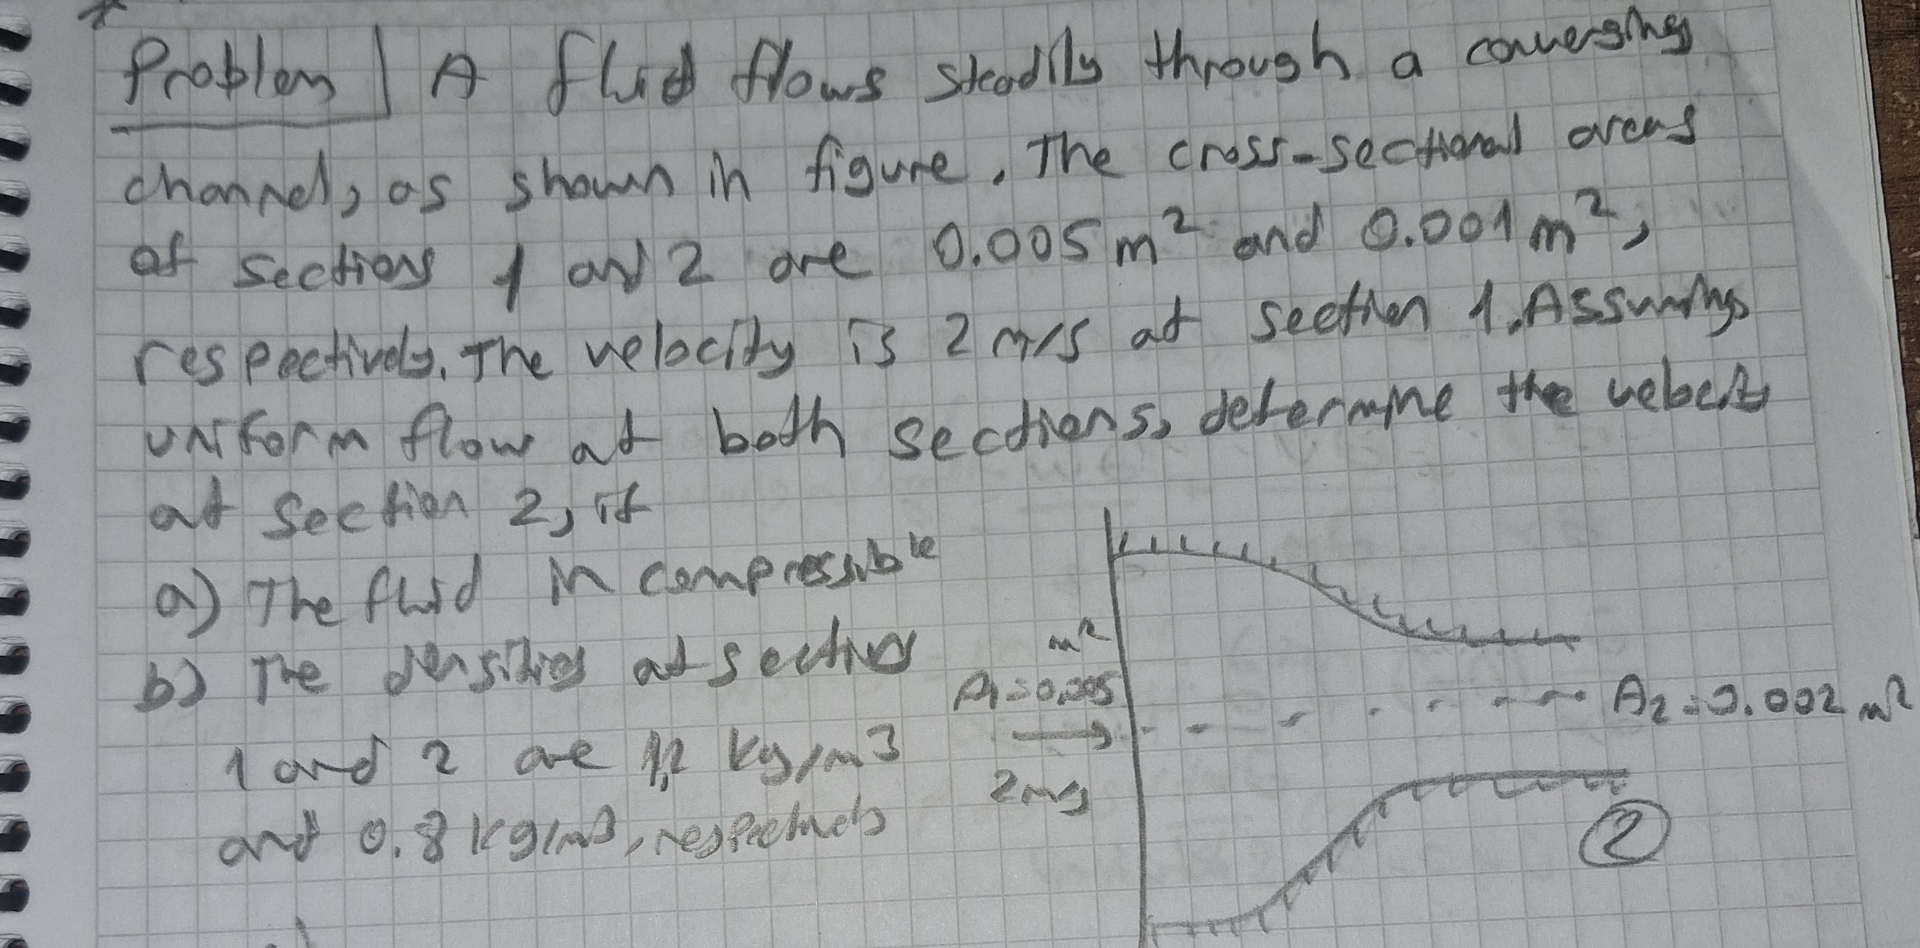 Problem | A fluid flows steadily through a converging
channel, as shown in figure. The cross-sectional areas
of sections 1 and 2 are 0.005 m² and 0.001 m²,
respectively. The velocity is 2 m/s at section 1. Assuming
uniform flow at both sections, determine the velocity
at section 2, if
a) The fluid incompressible
b) The densities at sections
1 and 2 are 1,2 kg/m3
and 0.8 kg/m3, respectively
A₁=0.005 m²
2 m/s
A₂=0.002 m²
2